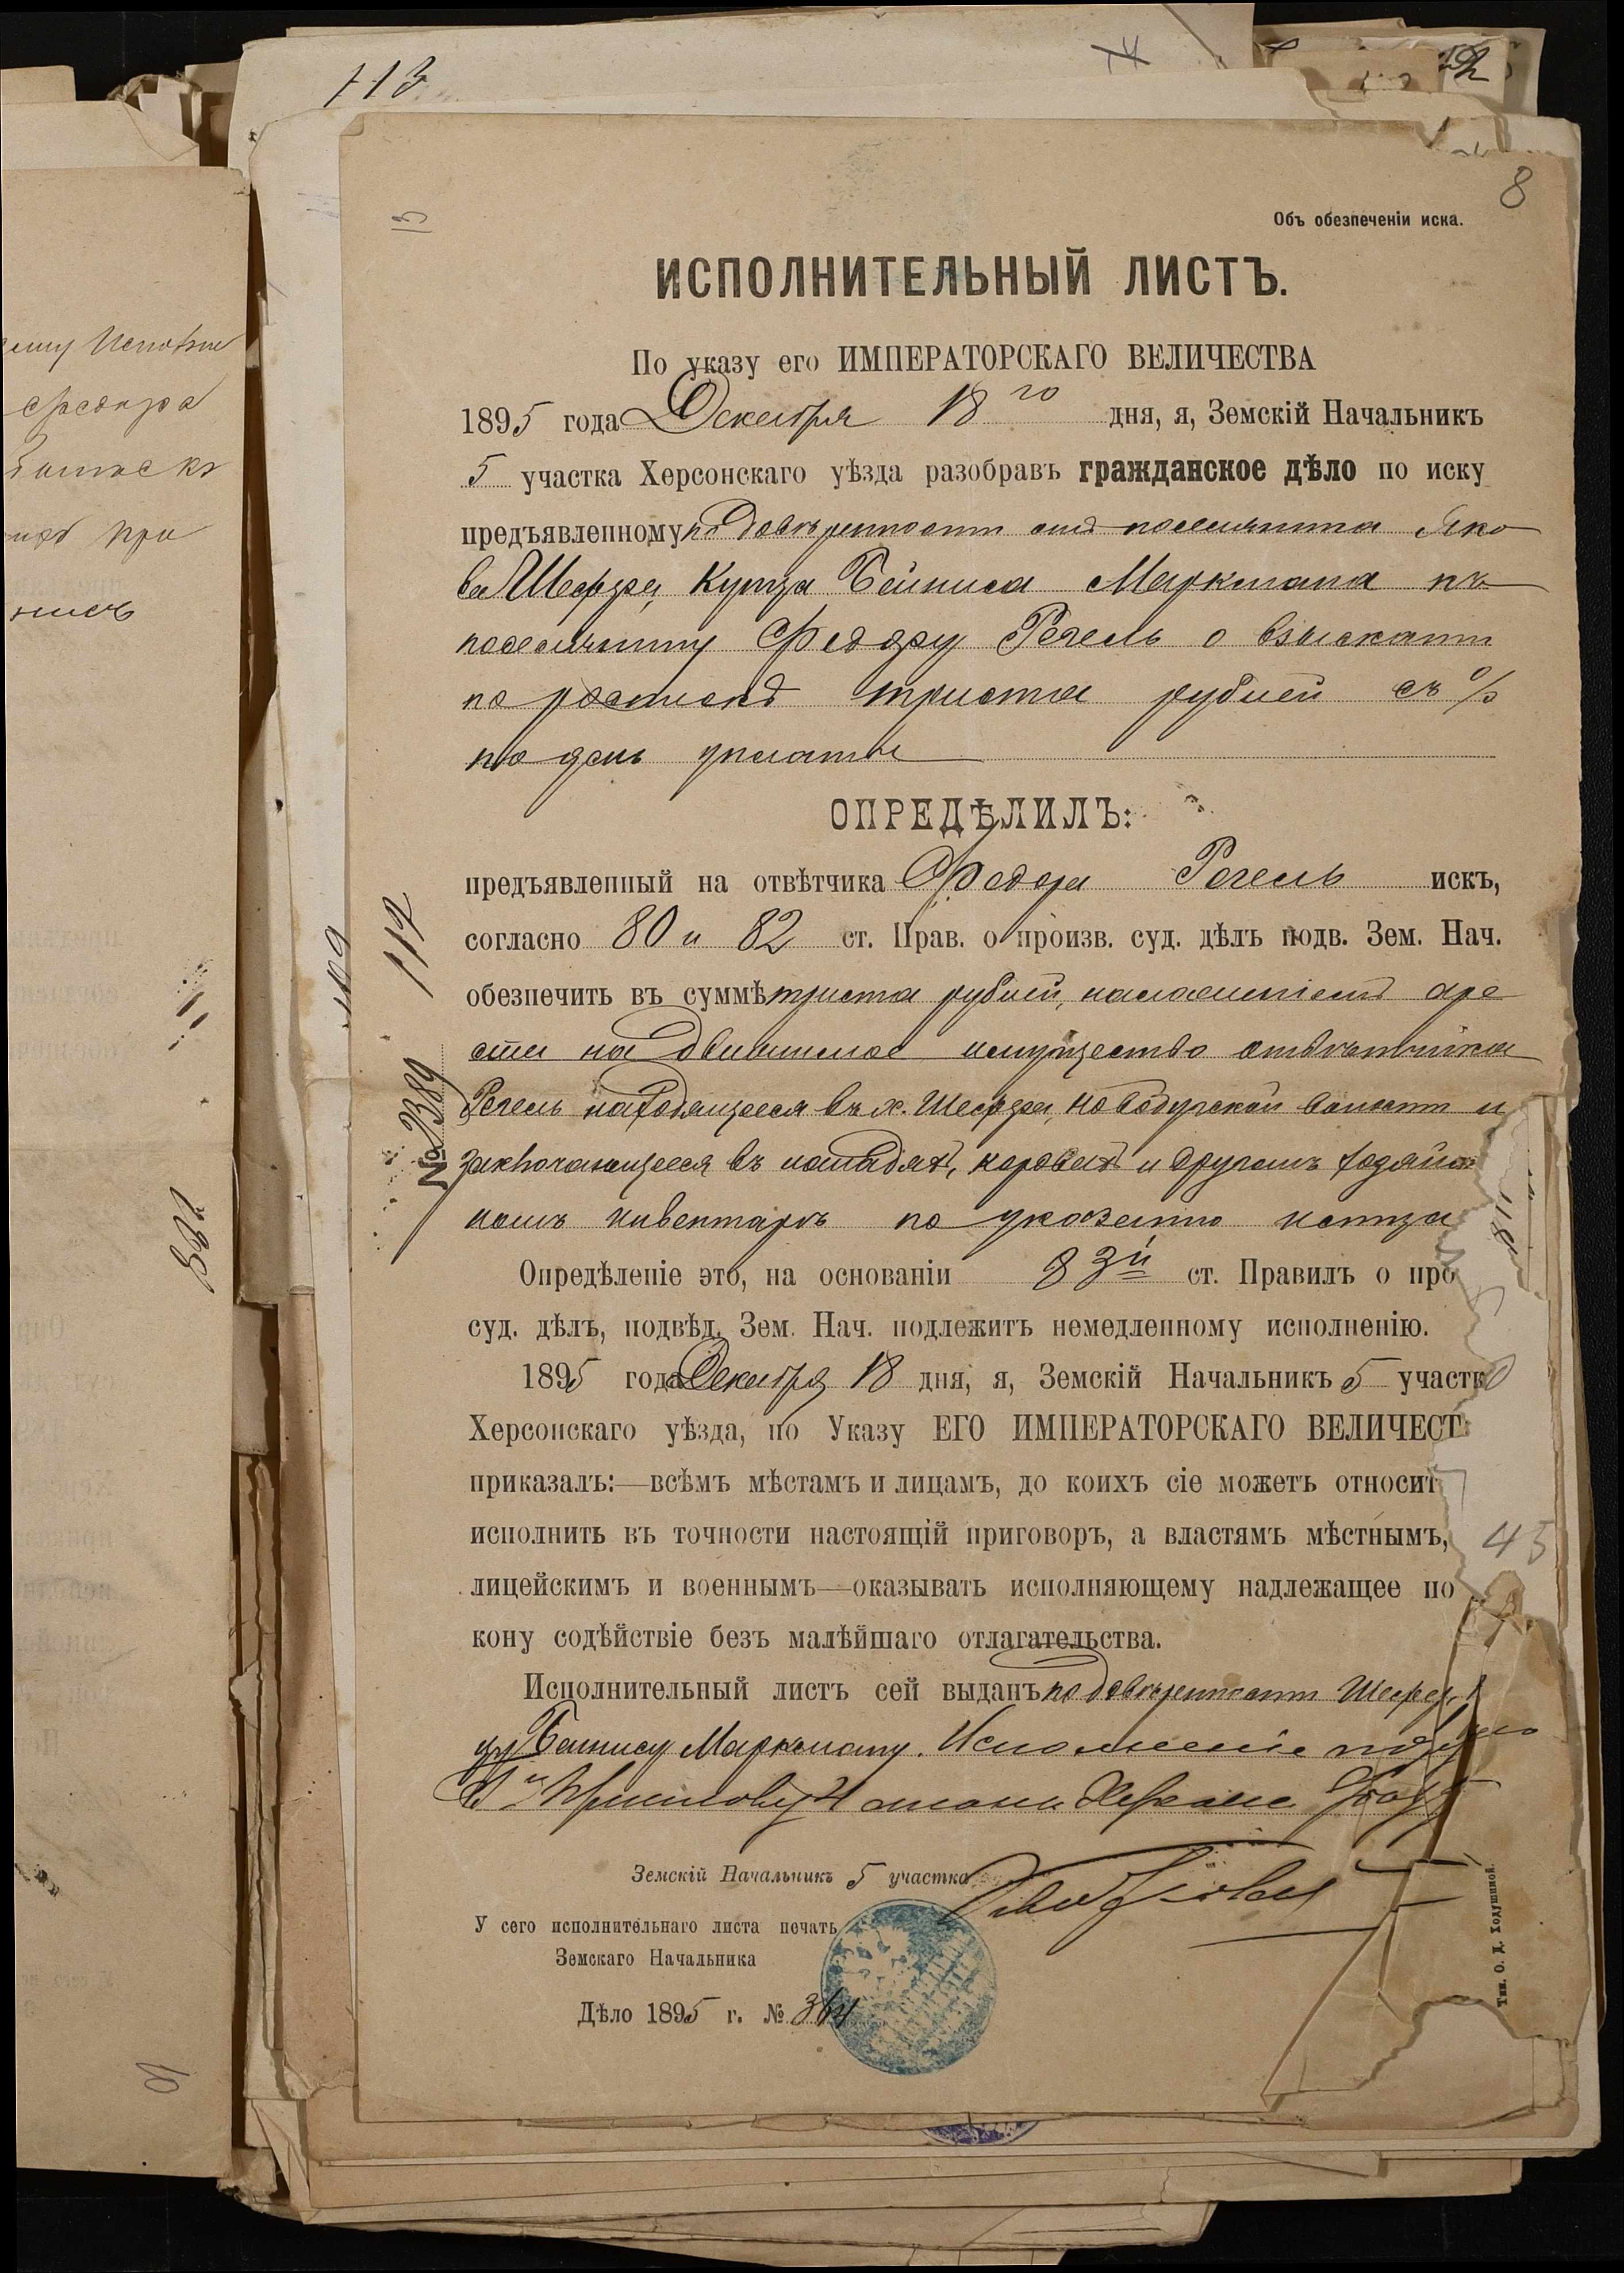 113
8
Объ обезпеченіи иска.
ИСПОЛНИТЕЛЬНЫЙ ЛИСТЪ.
По указу его ИМПЕРАТОРСКАГО ВЕЛИЧЕСТВА
1895 года Декабря 18го дня, я, Земскій Начальникъ
5 участка Херсонскаго уѣзда разобравъ гражданское дѣло по иску
предъявленному по довѣренности отъ поселянина Яко
ва Шефера, Купца Бейниса Маркмана къ
поселянину Федору Регель о взысканіи
по роспискѣ триста рублей съ %
по день уплаты
ОПРЕДѢЛИЛЪ:
предъявленный на отвѣтчика Федора Регель искъ,
согласно 80 и 82 ст. Прав. о произв. суд. дѣлъ подв. Зем. Нач.
обезпечить въ суммѣ триста рублей, наложеніемъ аре
ста на движимое имущество отвѣтчика
Регель находящееся въ х. Шефера, Новобугской волости и
заключающееся въ лошадяхъ, коровахъ и другомъ хозяйст
номъ инвентарѣ по указанію истца
Опредѣленіе это, на основаніи 83й ст. Правилъ о про
суд. дѣлъ, подвѣд. Зем. Нач. подлежитъ немедленному исполненію.
1895 года Декабря 18 дня, я, Земскій Начальникъ 5 участк
Херсонскаго уѣзда, по Указу ЕГО ИМПЕРАТОРСКАГО ВЕЛИЧЕСТ
приказалъ:—всѣмъ мѣстамъ и лицамъ, до коихъ сіе можетъ относит
исполнить въ точности настоящій приговоръ, а властямъ мѣстнымъ,
лицейскимъ и военнымъ—оказывать исполняющему надлежащее по
кону содѣйствіе безъ малѣйшаго отлагательства.
Исполнительный листъ сей выданъ по довѣренности Шефер
Бейнису Маркману. Исполненіе
Земскій Начальникъ 5 участка
У сего исполнительнаго листа печать
Земскаго Начальника
Дѣло 1895 г. № 364
112
109
№ 2389
45
Тип. О. Д. Ходушиной.